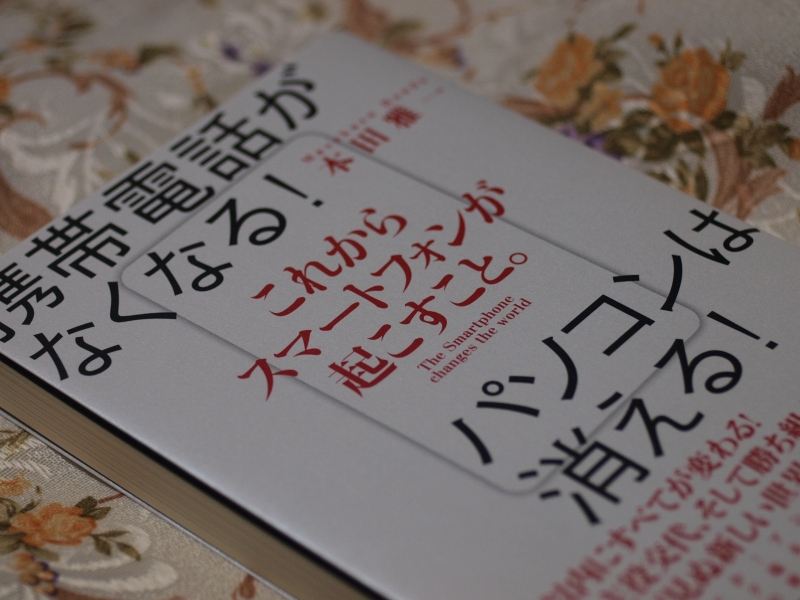 携帯電話が
なくなる!
本田雅一
これから
スマートフォンが
起こすこと。
The Smartphone
changes the world
パソコンは
消える!
すべてが変わる!
主役交代、そして勝ち組
見ぬ新しい世界